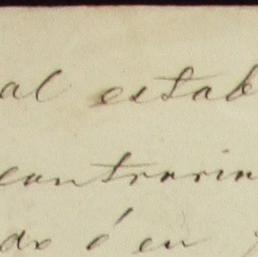 al estab
contrario
do é en